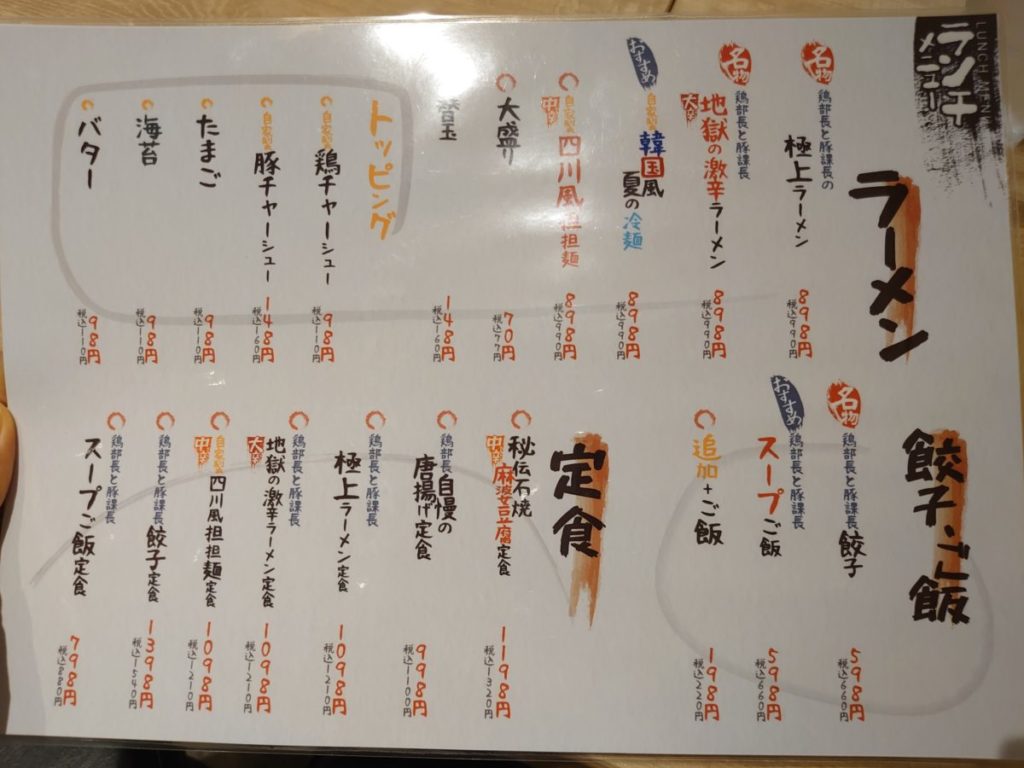 ランチメニュー
LUNCH MENU
ラーメン
名物
鶏部長と豚課長の
極上ラーメン
898円
税込990円
名物
鶏部長と豚課長
大辛
地獄の激辛ラーメン
898円
税込990円
おすすめ
自家製
韓国風
夏の冷麺
898円
税込990円
自家製
中辛
四川風担担麺
898円
税込990円
大盛り
70円
税込77円
替玉
148円
税込160円
トッピング
自家製
鶏チャーシュー
98円
税込110円
自家製
豚チャーシュー
148円
税込160円
たまご
98円
税込110円
海苔
98円
税込110円
バター
98円
税込110円
餃子、ご飯
名物
鶏部長と豚課長
餃子
598円
税込660円
おすすめ
鶏部長と豚課長
スープご飯
598円
税込660円
追加+ご飯
198円
税込220円
定食
秘伝石焼
中辛
麻婆豆腐定食
1198円
税込1320円
鶏部長と自慢の
唐揚げ定食
998円
税込1110円
鶏部長と豚課長
極上ラーメン定食
1098円
税込1210円
鶏部長と豚課長
大辛
地獄の激辛ラーメン定食
1098円
税込1210円
自家製
中辛
四川風担担麺定食
1098円
税込1210円
鶏部長と豚課長
餃子定食
1398円
税込1540円
鶏部長と豚課長
スープご飯定食
798円
税込880円